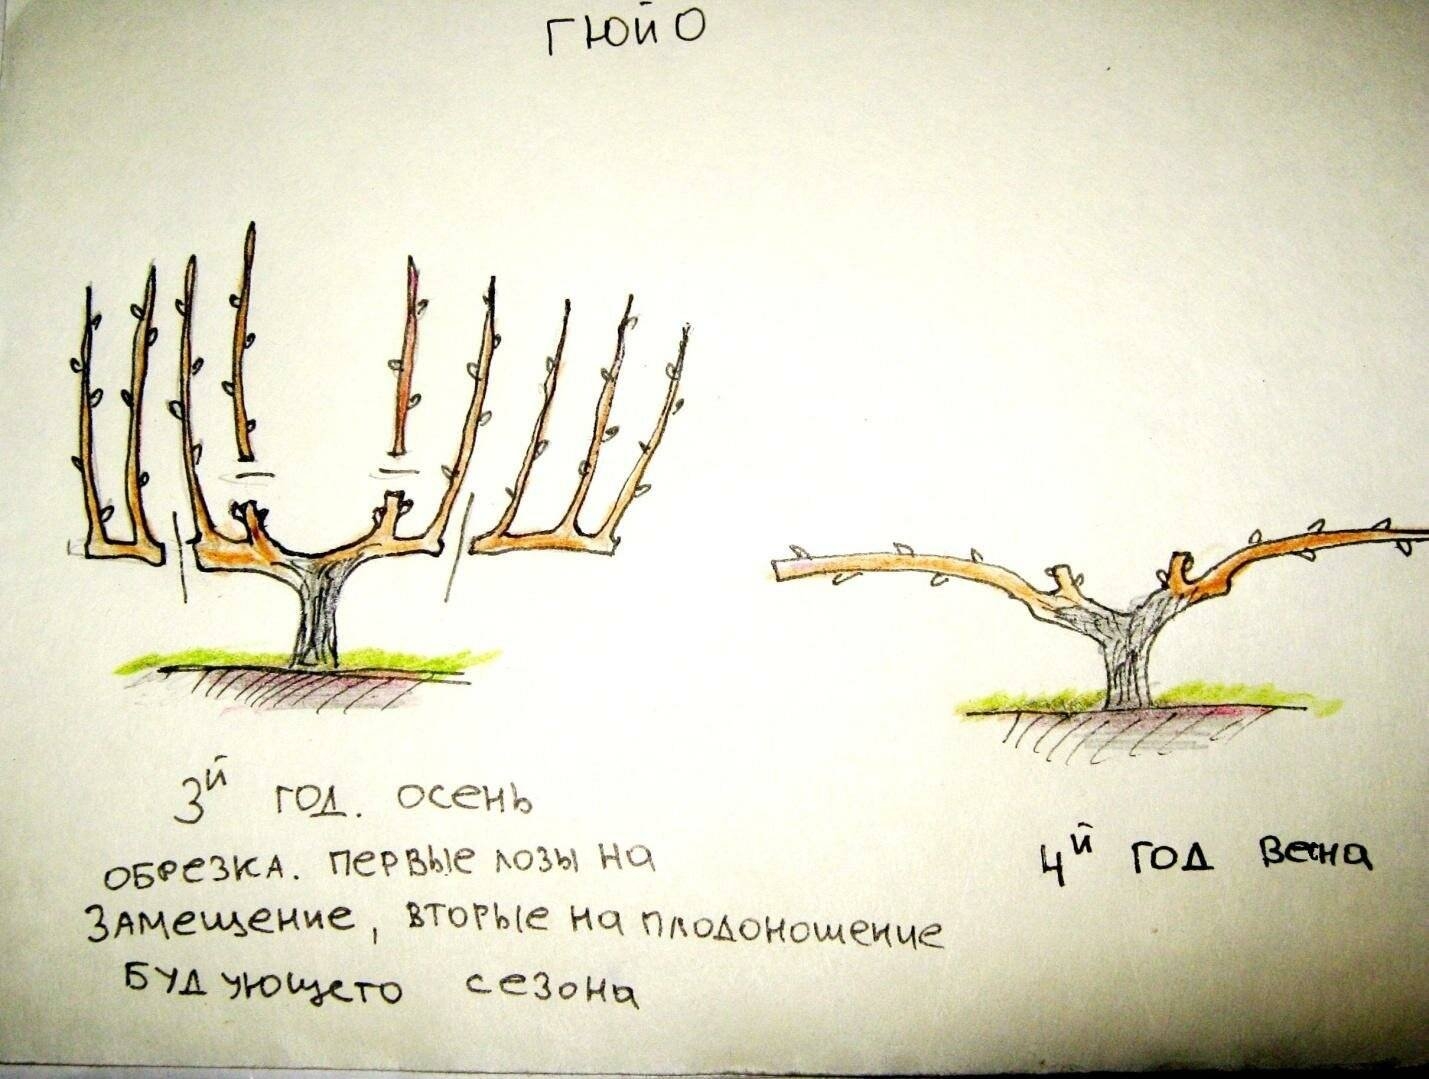 ГЮЙО
3й год. осень
обрезка. первые лозы на
замещение, вторые на плодоношение
будующего сезона
4й год весна